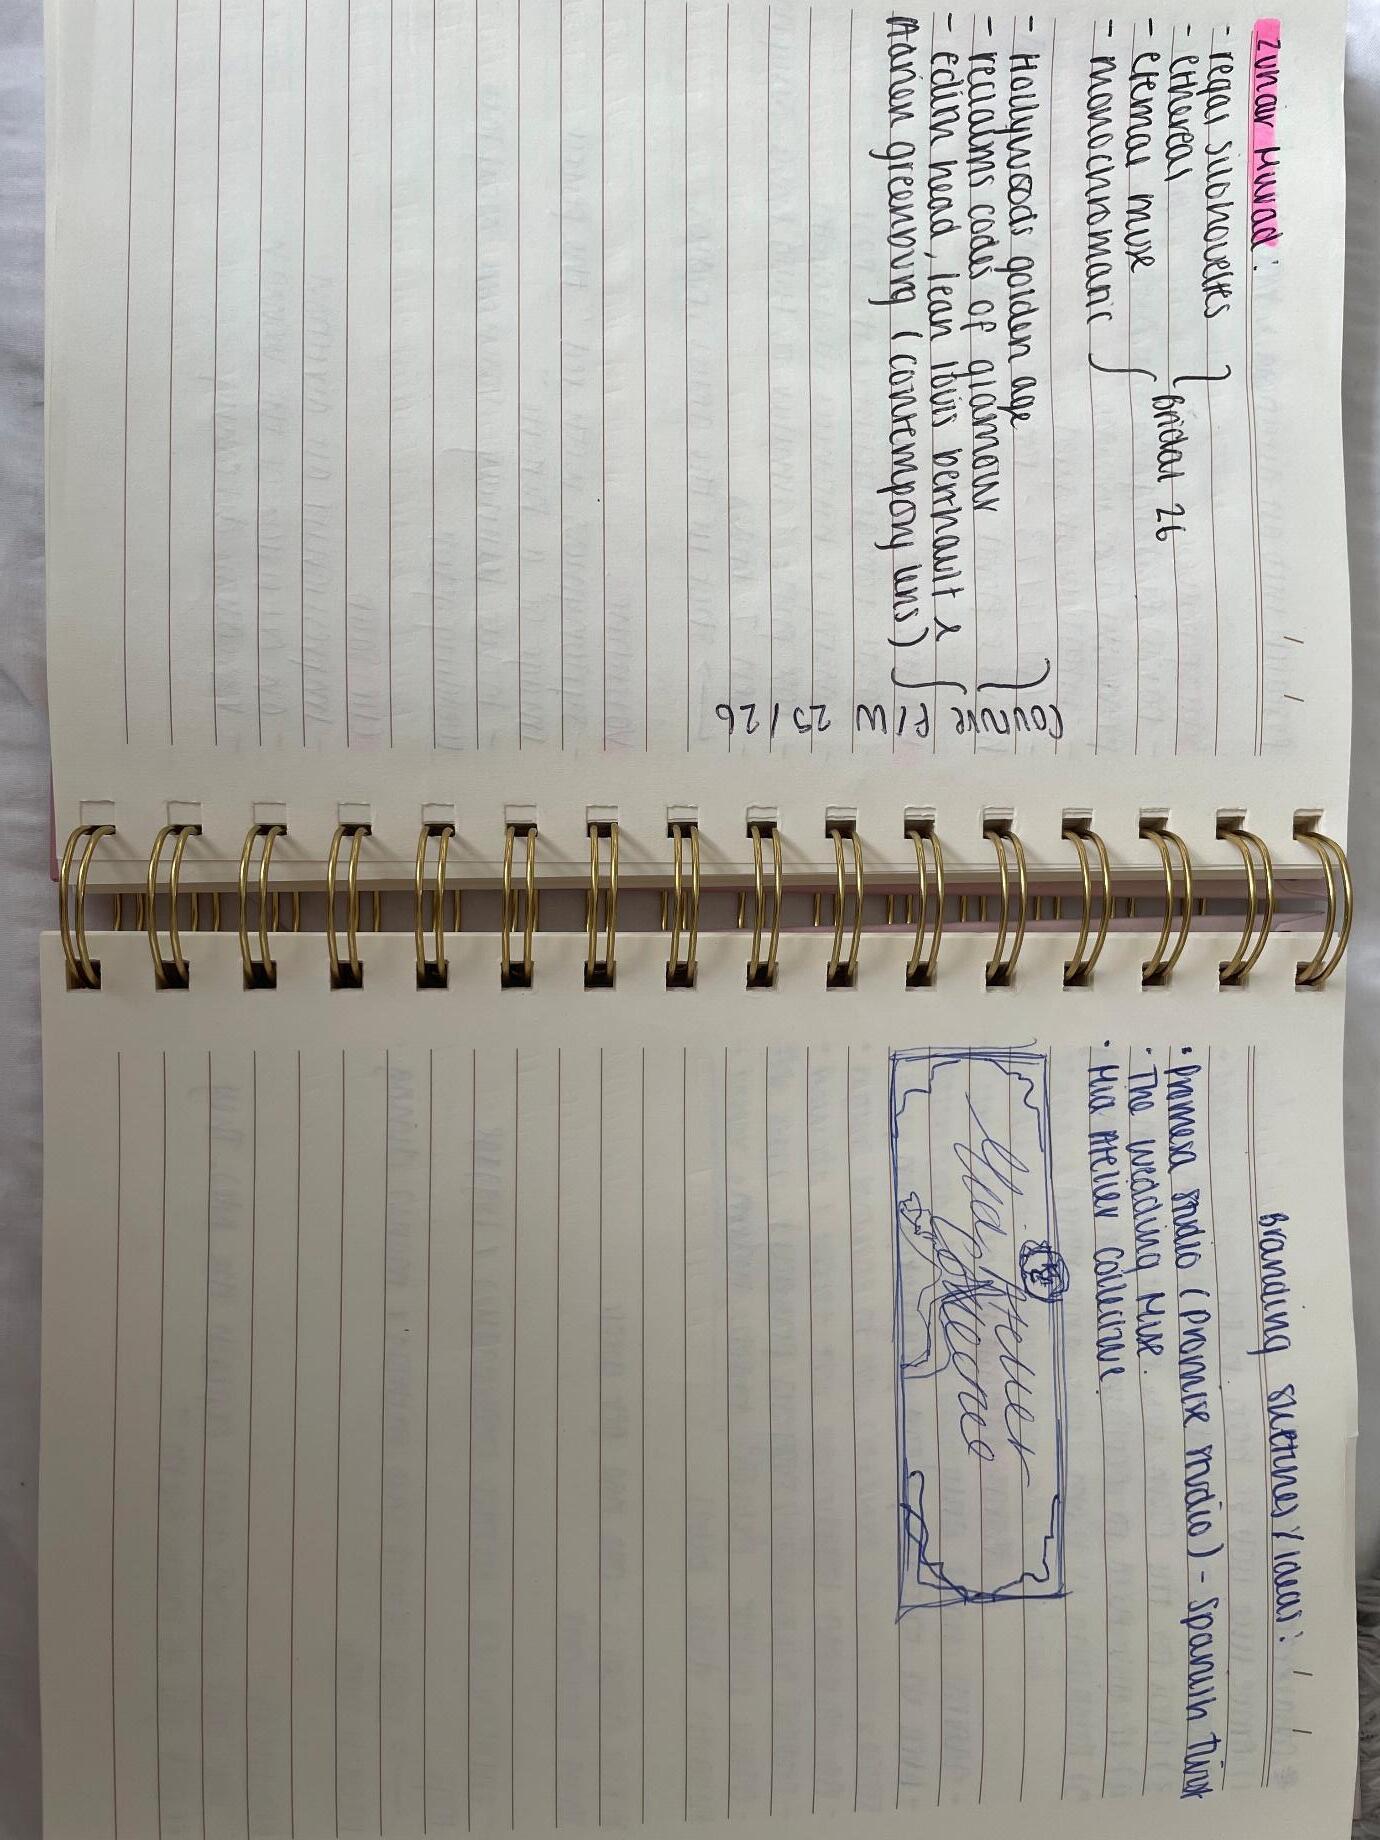 Zuhair Murad:
- regal silohouettes
- ethereal
- eternal muse
- monochromatic
Bridal 26
- Hollywoods golden age
- reclaims codes of glamour
- Edith head, Jean louis berthault &
Adrian greenburg (contempory lens)
Couture F/W 25/26
Branding sketches / ideas:
• Promesa studio (Promise studio) - Spanish twist
• The wedding Muse.
• Mia Atelier collective.
Mia Atelier
Collective